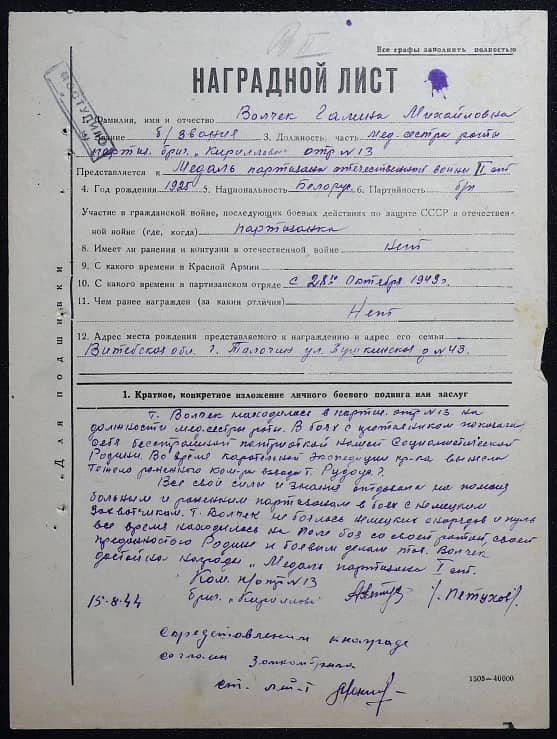 Все графы заполнить полностью
НАГРАДНОЙ ЛИСТ
Фамилия, имя и отчество Волчек Галина Михайловна
Звание б/звания 3. Должность, часть мед-сестра роты
партиз. бриг. „Кириллова" отр №13
Представляется к Медаль партизана отечественной войны II ст
4. Год рождения 1925 5. Национальность Белорус. 6. Партийность б/п
Участие в гражданской войне, последующих боевых действиях по защите СССР и отечествен-
ной войне (где, когда) партизанка
8. Имеет ли ранения и контузии в отечественной войне нет
9. С какого времени в Красной Армии
10. С какого времени в партизанском отряде с 28го Октября 1943г.
11. Чем ранее награжден (за какия отличия) Нет
12. Адрес места рождения представляемого к награждению и адрес его семьи
Витебская обл. г. Толочин ул. Пушкинская д №43.
Для подшивки
1. Краткое, конкретное изложение личного боевого подвига или заслуг
Т. Волчек находилась в партиз. отр №13 на
должности мед.сестры роты. В боях с показала
себя бесстрашной патриоткой нашей Социалистической
Родины. Во время карательной экспедиции пр-ка вынесла
тяжело раненного ком-ра взвода т.
Все свои силы и знания отдавала на помощь
больным и раненным партизанам в боях с немецким
захватчикам. Т. Волчек не боялась немецких снарядов и пуль
все время находилась на поле боя со своей ротой, своей
преданностью Родине и боевым делам тов. Волчек
достойна награды „Медаль партизана I ст.
Ком. п/отр №13
бриг. „Кириллова" /Петухов/.
15-8-44
С представлением к награде
согласен
ст. лей-т
1505—40000